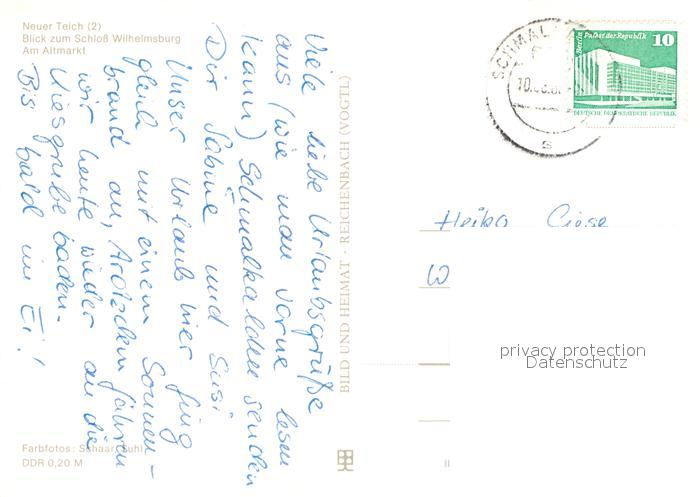 Neuer Teich (2)
Blick zum Schloß Wilhelmsburg
Am Altmarkt
Viele liebe Urlaubsgrüße
aus (wie man vorne lesen
kann) Schmalkalden senden
Dir Sabine und Susi
Unser Urlaub hier fing
gleich mit einem Sonnen-
brand an, trotzdem fahren
wir heute wieder an die
Kiesgrube baden.
Bis bald im Ei!
Farbfotos: Schaar, Suhl
DDR 0,20 M
BILD UND HEIMAT · REICHENBACH (VOGTL)
SCHMAL
10
Berlin Palast der Republik
10
DEUTSCHE DEMOKRATISCHE REPUBLIK
s
Heiko Giese
W
privacy protection
Datenschutz
II